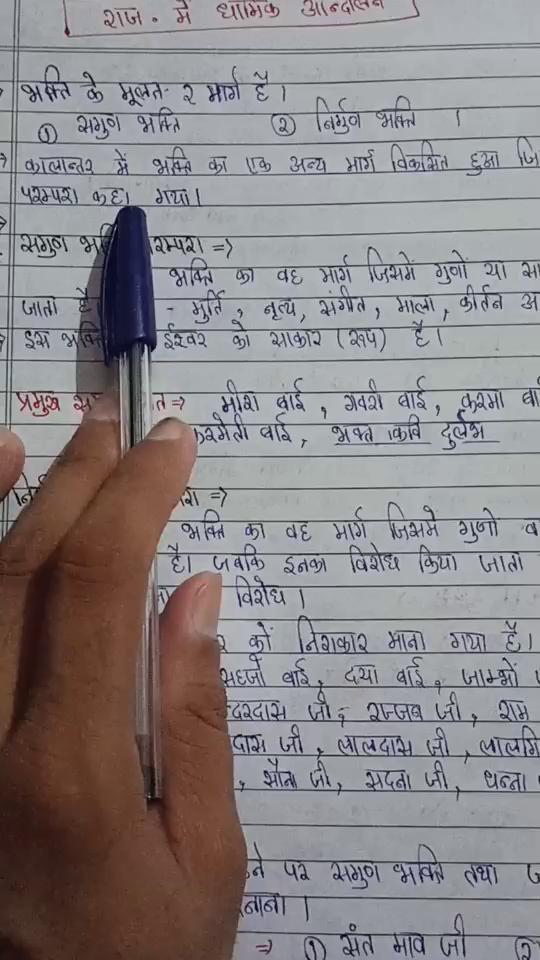 राज. में धार्मिक आन्दोलन
भक्ति के मूलत- २ मार्ग है।
① सगुण भक्ति ② निर्गुण भक्ति ।
कालान्तर में भक्ति का एक अन्य मार्ग विकसित हुआ
परम्परा कहा गया।
सगुण =>
भक्ति का वह मार्ग जिसमें गुणों या
जाता है - मुर्ति, नृत्य, संगीत, माला, कीर्तन
इस ईश्वर को साकार (रूप) है।
प्रमुख => मीरा बाई, गवरी बाई, करमा
करमेती बाई, भक्त कवि दुर्लभ
=>
भक्ति का वह मार्ग जिसमें गुणो
है। जबकि इनका विरोध किया जाता
विरोध।
को निराकार माना गया है।
सहजो बाई, दया बाई, जाम्भों
जी, रज्जब जी, राम
जी, लालदास जी,
जी, सदना जी, धन्ना
पर सगुण भक्ति तथा
=> ① संत माव जी